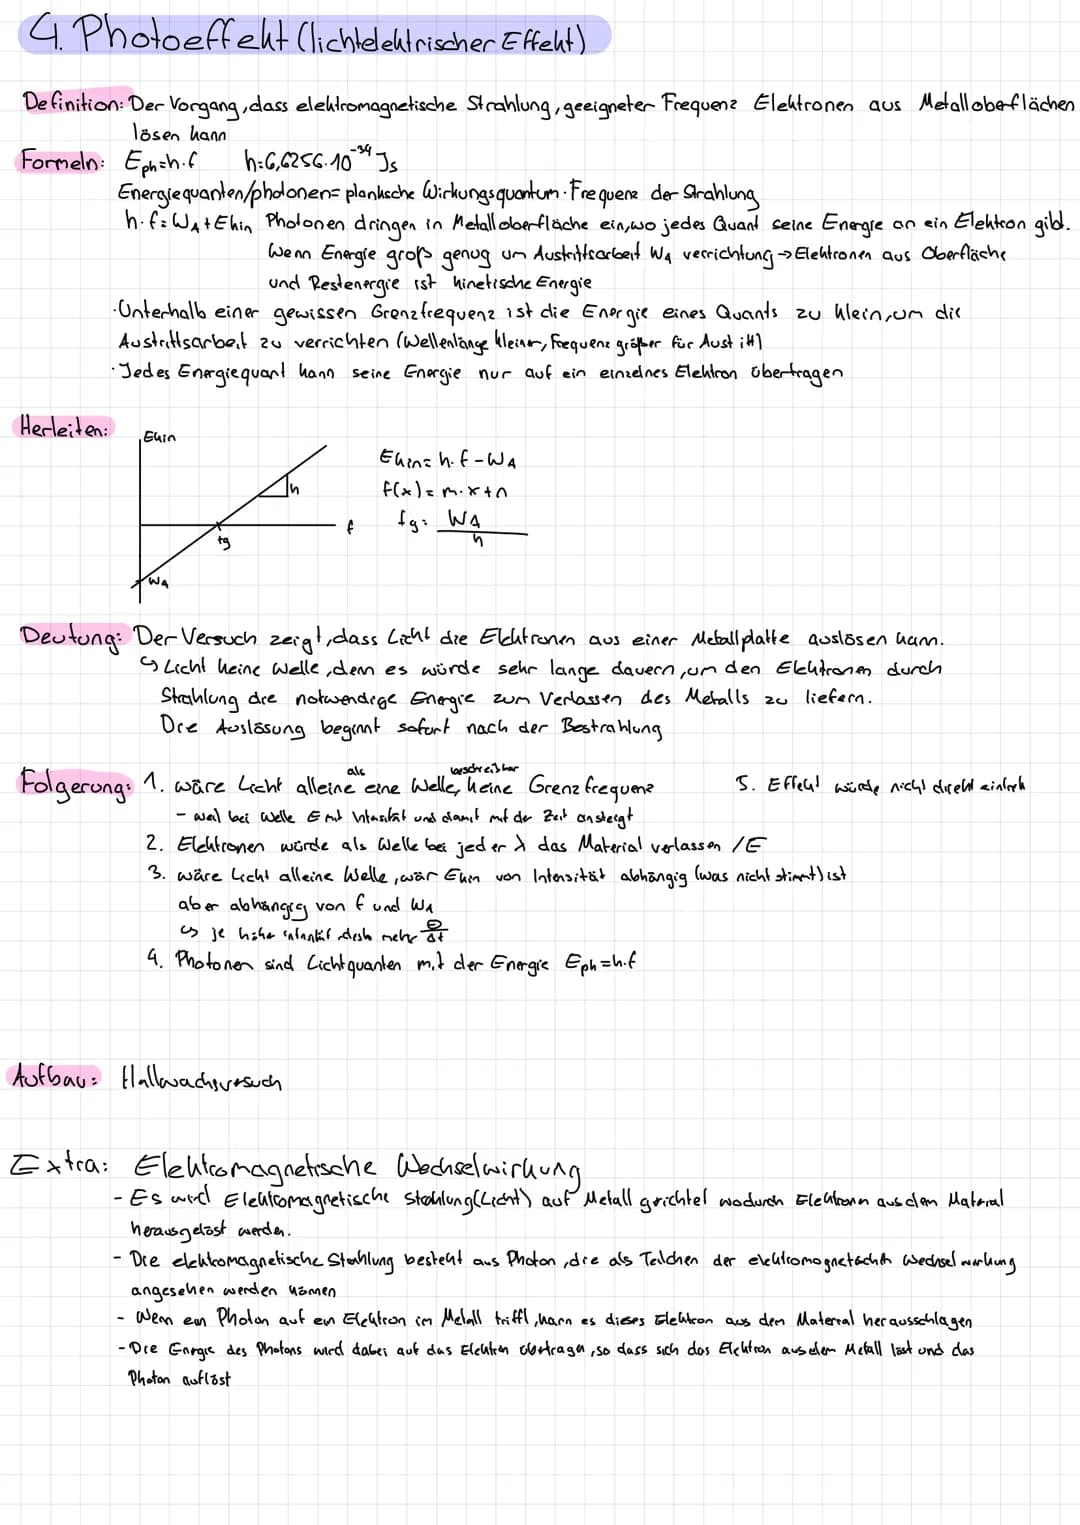 4. Photoeffekt (lichtelektrischer Effekt)
Definition: Der Vorgang, dass elektromagnetische Strahlung, geeigneter Frequenz Elektronen aus Metalloberflächen
lösen kann
Formeln: Eph=h·f h=6,6256·10^-34 Js
Energiequanten/photonen= planksche Wirkungsquantum·Frequenz der Strahlung
h·f=WA+Ekin Photonen dringen in Metalloberfläche ein, wo jedes Quant seine Energie an ein Elektron gibt.
Wenn Energie groß genug um Austrittsarbeit WA verrichtung → Elektronen aus Oberfläche
und Restenergie ist kinetische Energie
·Unterhalb einer gewissen Grenzfrequenz ist die Energie eines Quants zu klein, um die
Austrittsarbeit zu verrichten (Wellenlänge kleiner, Frequenz größer für Austritt)
·Jedes Energiequant kann seine Energie nur auf ein einzelnes Elektron übertragen
Herleiten:
Ekin
h
f
fg
WA
Ekin= h·f-WA
f(x)= m·x+n
fg= WA/h
Deutung: Der Versuch zeigt, dass Licht die Elektronen aus einer Metallplatte auslösen kann.
↪ Licht keine Welle, denn es würde sehr lange dauern, um den Elektronen durch
Strahlung die notwendige Energie zum Verlassen des Metalls zu liefern.
Die Auslösung beginnt sofort nach der Bestrahlung
Folgerung: 1. wäre Licht alleine als eine Welle beschreibbar, keine Grenzfrequenz
- weil bei Welle E mit Intensität und damit mit der Zeit ansteigt
2. Elektronen würde als Welle bei jeder λ das Material verlassen /E
3. wäre Licht alleine Welle, wär Ekin von Intensität abhängig (was nicht stimmt) ist
aber abhängig von f und WA
↪ je höher Intensität desto mehr e/Δt
4. Photonen sind Lichtquanten mit der Energie Eph=h·f
5. Effekt würde nicht direkt
Aufbau: Hallwachsversuch
Extra: Elektromagnetische Wechselwirkung
- Es wird Elektromagnetische Strahlung (Licht) auf Metall gerichtet wodurch Elektronen aus dem Material
herausgelöst werden.
- Die elektromagnetische Strahlung besteht aus Photon, die als Teilchen der elektromagnetischen Wechselwirkung
angesehen werden können
- Wenn ein Photon auf ein Elektron im Metall trifft, kann es dieses Elektron aus dem Material herausschlagen
- Die Energie des Photons wird dabei auf das Elektron übertragen, so dass sich das Elektron aus dem Metall löst und das
Photon auflöst